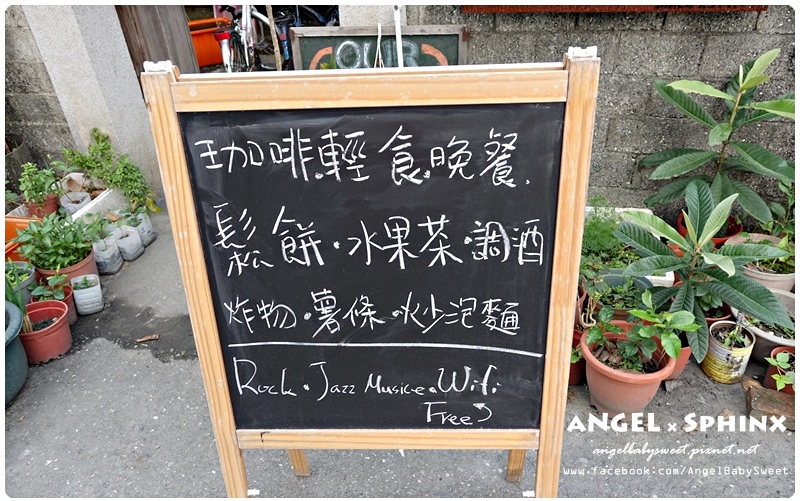 OUR
珈啡.輕食.晚餐.
鬆餅·水果茶·調酒
炸物·薯條·炒泡麵
Rock·Jazz Musice.Wifi
Free
ANGEL x SPHINX
angelbabysweet.pixnet.net
www.facebook.com/AngelBabySweet